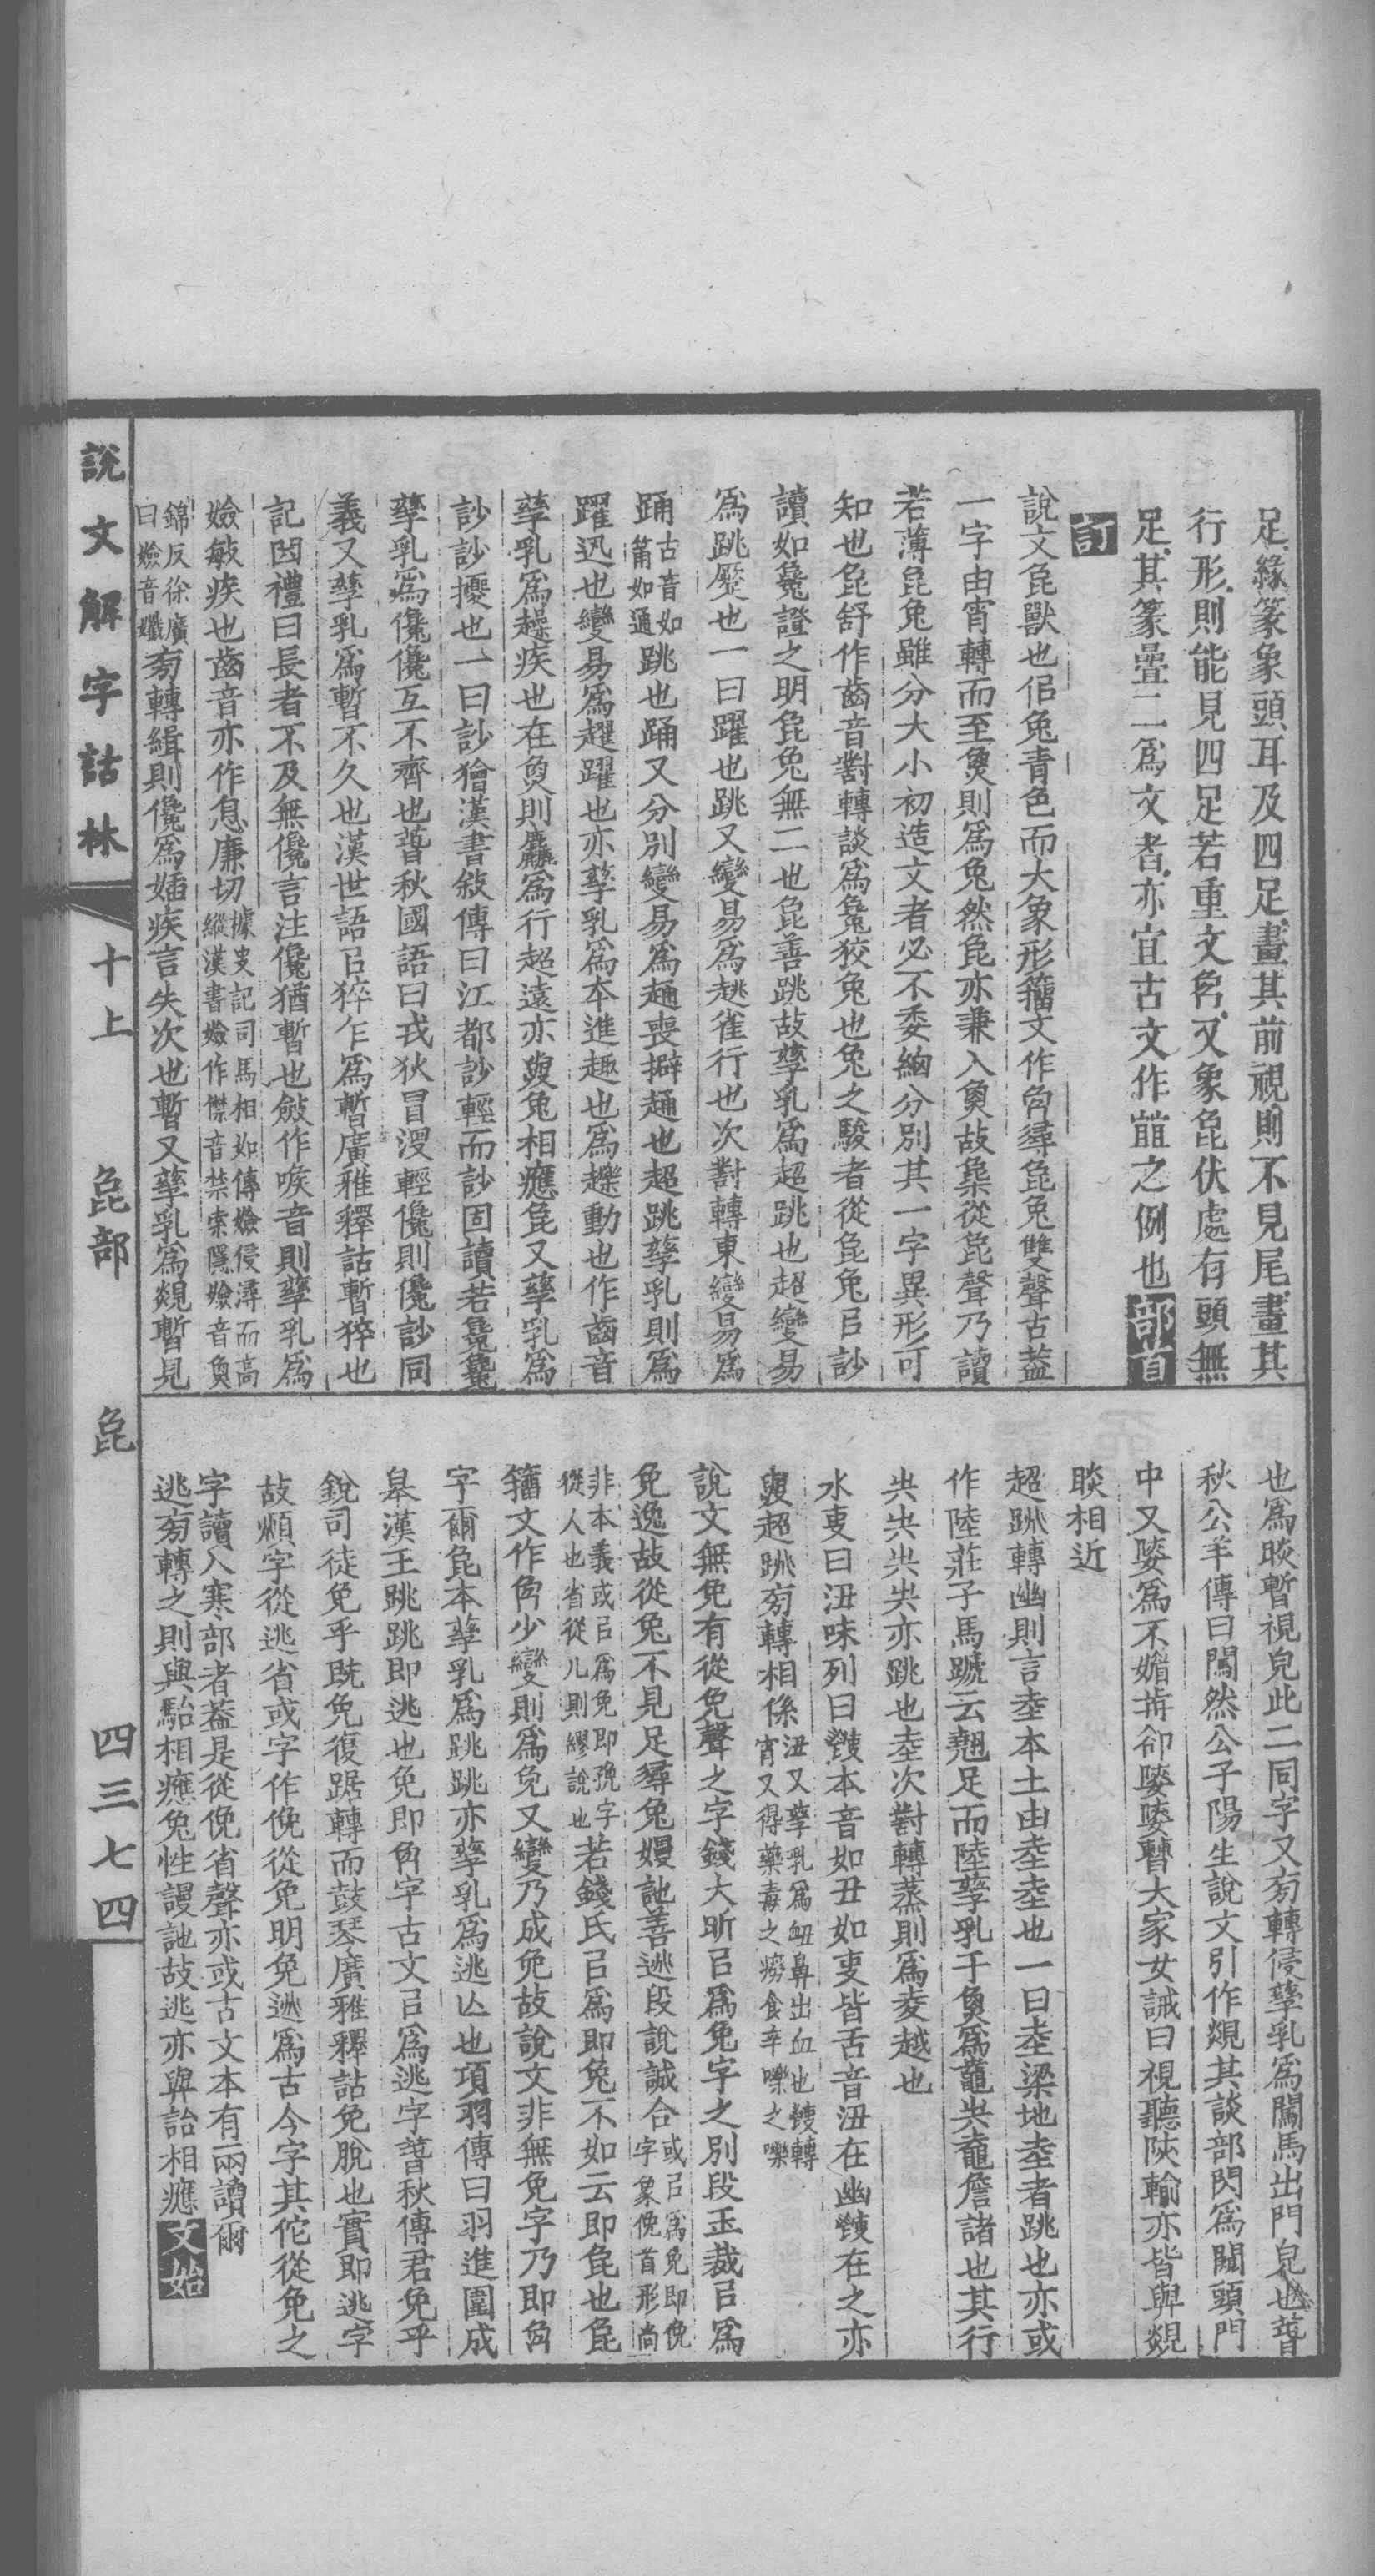 足緣篆象頭耳及四足畫其前視則不見尾畫其
行形則能見四足若重文㕙又象㲋伏處有頭無
足其篆疊二爲文者亦宜古文作䶂之例也部首
訂
說文㲋獸也佀兔青色而大象形籀文作㕙㝷㲋兔雙聲古葢
一字由宵轉而至魚則爲兔然㲋亦兼入魚故㚟從㲋聲乃讀
若薄㲋兔雖分大小初造文者必不委細分別其一字異形可
知也㲋舒作齒音對轉談爲毚狡兔也兔之駿者從㲋兔㠯訬
讀如毚證之明㲋兔無二也㲋善跳故孳乳爲超跳也超變易
爲跳蹷也一曰躍也跳又變易爲趒雀行也次對轉東變易爲
踊古音如筩如通跳也踊又分別變易爲䞳喪擗䞳也超跳孳乳則爲
躍迅也變易爲趯躍也亦孳乳爲夲進趣也爲趮動也作齒音
孳乳爲趮疾也在魚則麤爲行超遠亦㲋兔相應㲋又孳乳爲
訬訬擾也一曰訬獪漢書敍傳曰江都訬輕而訬固讀若毚毚
孳乳爲儳儳互不齊也晉秋國語曰戎狄冒沒輕儳則儳訬同
義又孳乳爲暫不久也漢世語㠯猝乍爲暫廣雅釋詁暫猝也
記曲禮曰長者不及無儳言注儳猶暫也斂作唊音則孳乳爲
嬐敏疾也齒音亦作息廉切據史記司馬相如傳嬐侵潯而高縱漢書嬐作傑音禁索隱嬐音魚
錦反徐廣曰嬐音孅㫄轉緝則儳爲㛼疾言失次也暫又孳乳爲覢暫見
也爲睒暫視皃此二同字又㫄轉侵孳乳爲闖馬出門皃也春
秋公羊傳曰闖然公子陽生說文引作覢其談部閃爲闚頭門
中又䁖爲不媚前卻䁖䁖曹大家女誡曰視聽陜輸亦皆與覢
睒相近
超跳轉幽則言坴本土由坴坴也一曰坴梁地坴者跳也亦或
作陸莊子馬蹏云翹足而陸孳乳于魚爲鼀圥鼀詹諸也其行
圥圥圥圥亦跳也坴次對轉蒸則爲夌越也
水吏曰沑味列曰䬦本音如丑如吏皆舌音沑在幽䬦在之亦
與超跳㫄轉相係沑又孳乳爲衄鼻出血也䬦轉宵又得藥毒之癆食辛嚛之嚛
說文無免有從免聲之字錢大昕㠯爲兔字之別段玉裁㠯爲
免逸故從兔不見足㝷兔嫚訑善逃段說誠合或㠯爲免即俛字象俛首形尚
非本義或㠯爲免即㝃字從人也省從儿則繆說也若錢氏㠯爲即兔不如云即㲋也㲋
籀文作㕙少變則爲免又變乃成免故說文非無免字乃即㕙
字爾㲋本孳乳爲跳跳亦孳乳爲逃亾也項羽傳曰羽進圍成
皋漢王跳跳即逃也免即㕙字古文㠯爲逃字春秋傳君免乎
銳司徒免乎旣免復踞轉而鼓琴廣雅釋詁免脫也實即逃字
故頫字從逃省或字作俛從免明免逃爲古今字其佗從免之
字讀入寒部者葢是從俛省聲亦或古文本有兩讀爾
逃㫄轉之則與駘相應兔性謾訑故逃亦與詒相應文始
說文解字詁林 十上 㲋部 㲋 四三七四